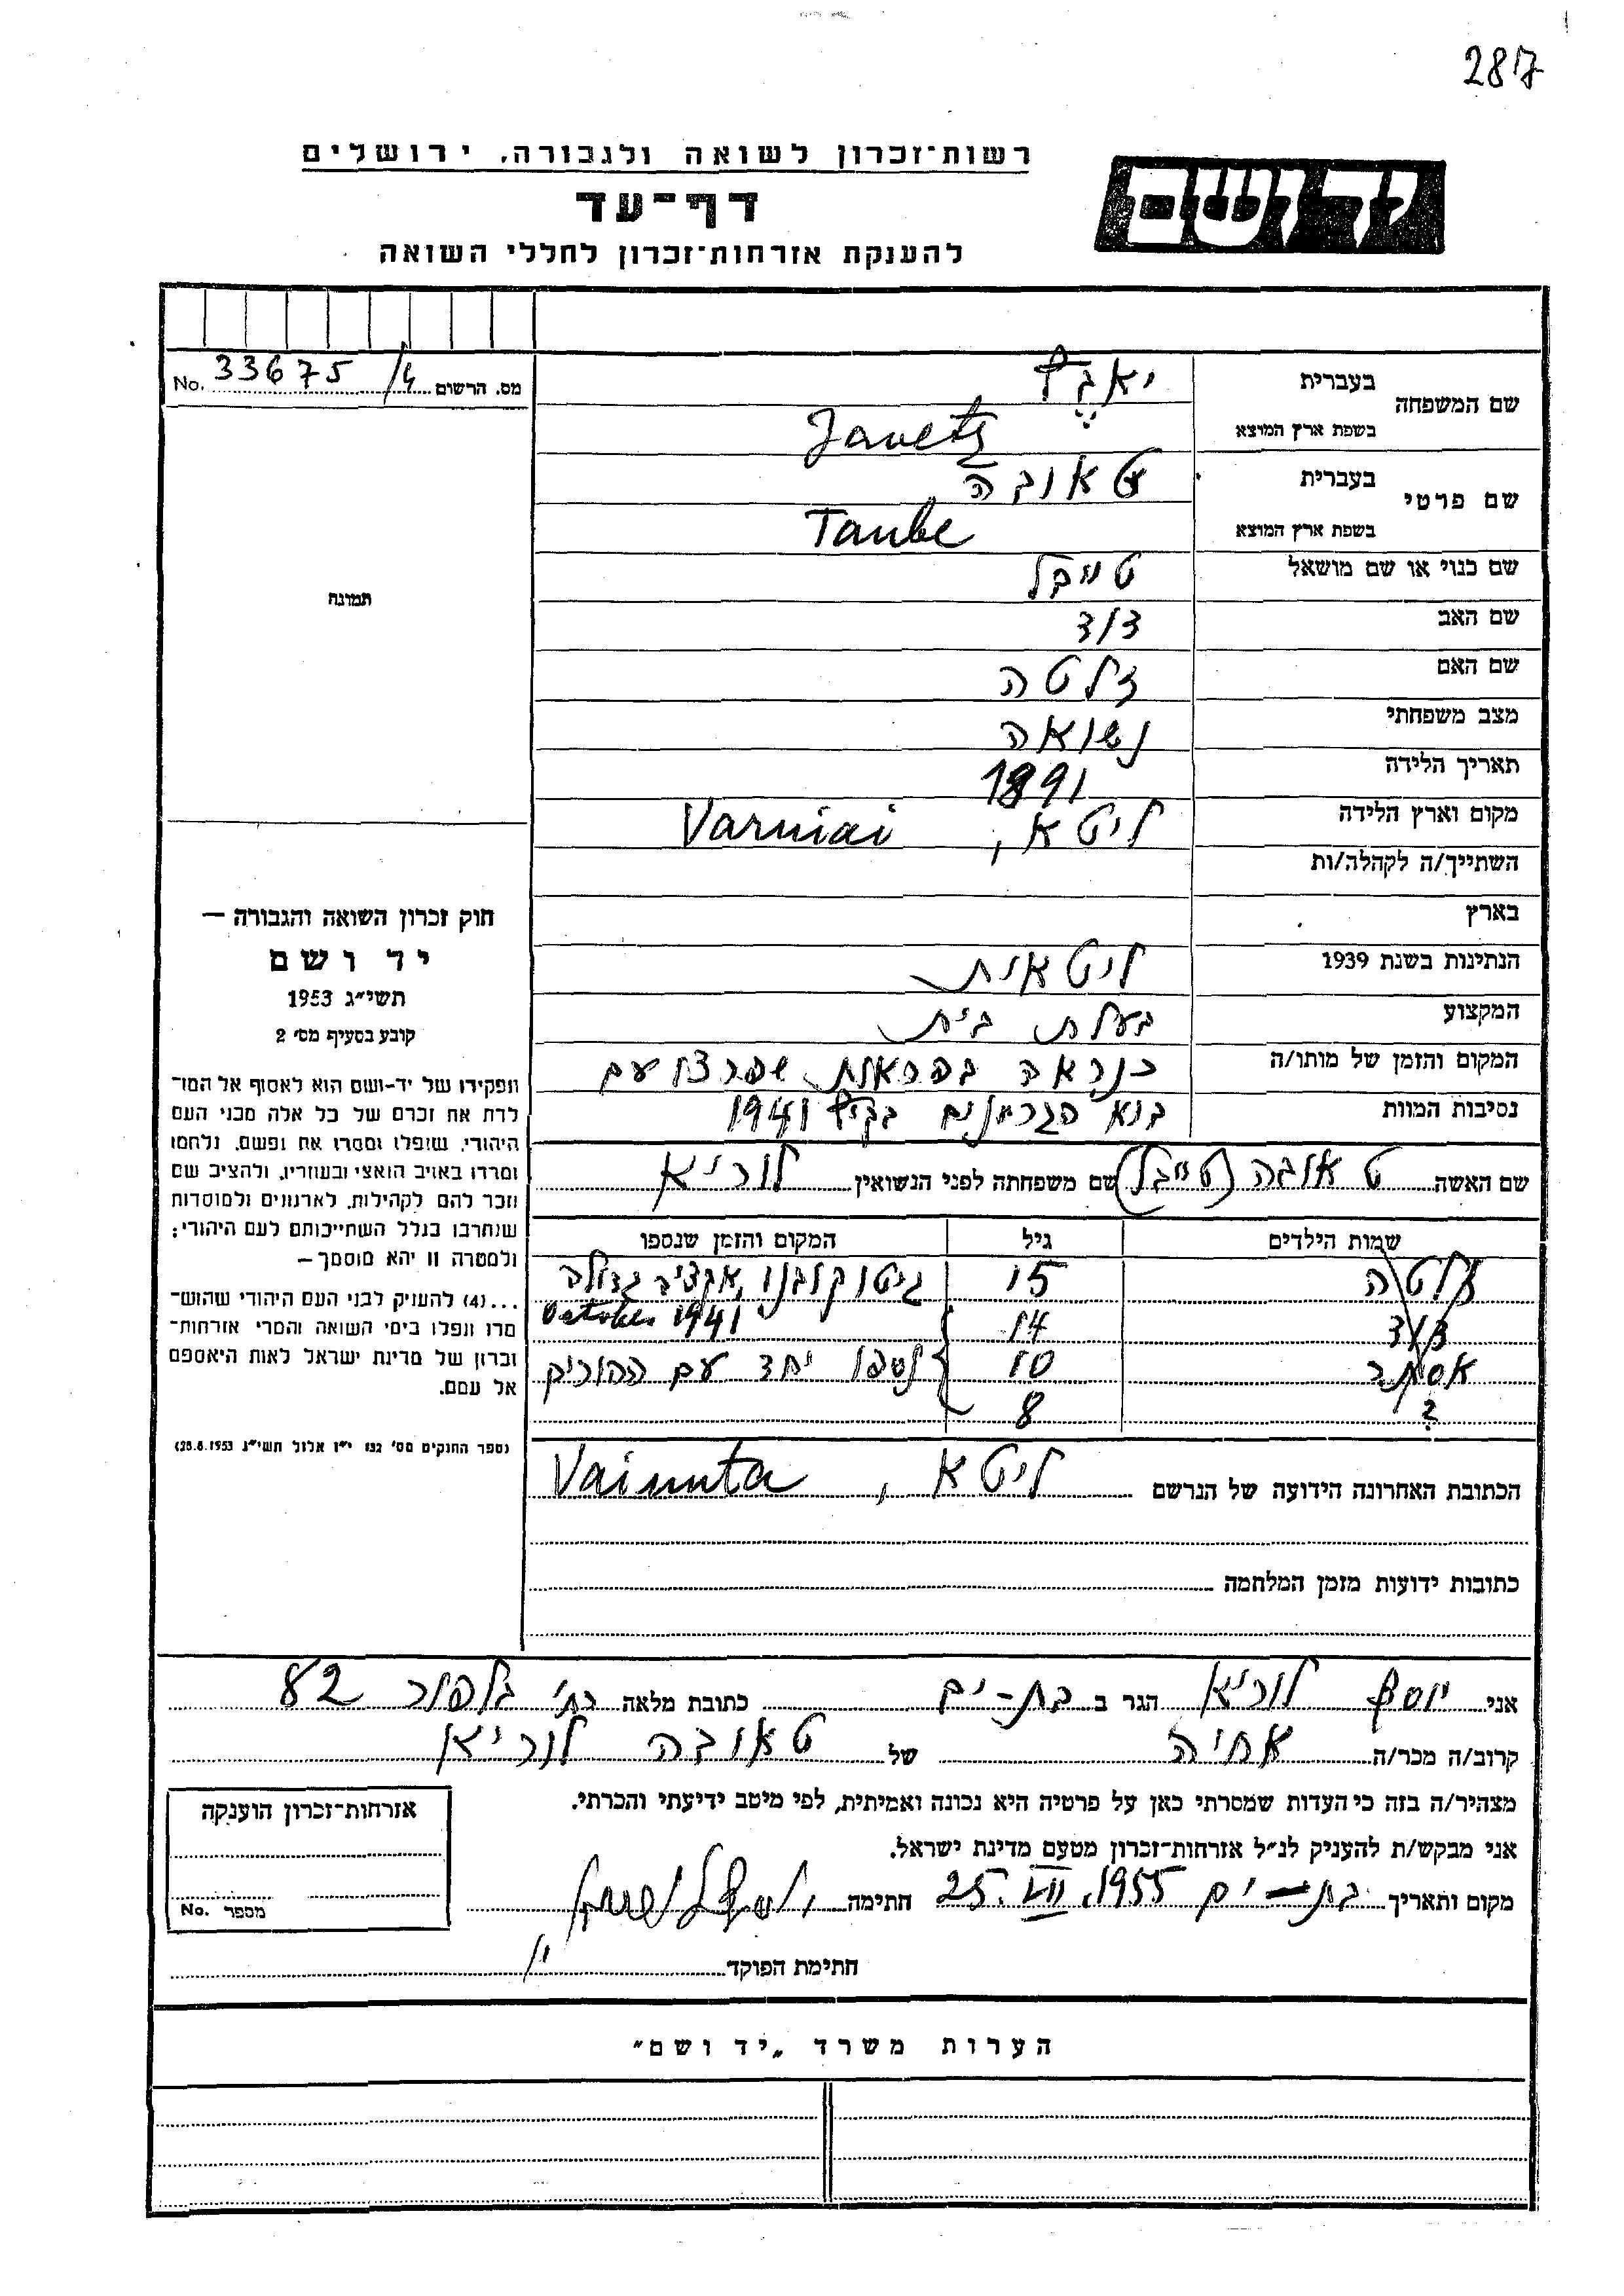 287
רשות־זכרון לשואה ולגבורה, ירושלים
יד ושם
דף־עד
להענקת אזרחות־זכרון לחללי השואה
מס. הרשום 33675/4 No.
שם המשפחה
בעברית יאבץ
בשפת ארץ המוצא Javetz
שם פרטי
בעברית טאובה
בשפת ארץ המוצא Taube
שם כנוי או שם מושאל טייבל
שם האב דוד
שם האם זלטה
מצב משפחתי נשואה
תאריך הלידה 1891
מקום וארץ הלידה ליטא, Varniai
השתייך/ה לקהלה/ות
בארץ
הנתינות בשנת 1939 ליטאית
המקצוע בעלת בית
המקום והזמן של מותו/ה כנראה בפראות שפרצו עם
נסיבות המוות בוא הגרמנים בקיץ 1941
תמונה
חוק זכרון השואה והגבורה —
יד ושם
תשי״ג 1953
קובע בסעיף מס׳ 2
תפקידו של יד-ושם הוא לאסוף אל המו־
לדת את זכרם של כל אלה מבני העם
היהודי, שנפלו ומסרו את נפשם, נלחמו
ומרדו באויב הנאצי ובעוזריו, ולהציב שם
וזכר להם לקהילות, לארגונים ולמוסדות
שנחרבו בגלל השתייכותם לעם היהודי;
ולמטרה זו יהא מוסמך—
...(4) להעניק לבני העם היהודי שהוש־
מדו ונפלו בימי השואה והמרי אזרחות־
זכרון של מדינת ישראל לאות היאספם
אל עמם.
(ספר החוקים מס׳ 132 י״ז אלול תשי״ג 28.8.1953)
שם האשה טאובה (טייבל) שם משפחתה לפני הנשואין לוריא
שמות הילדים גיל המקום והזמן שנספו
זלטה 15 גיטו קובנו, אקציה גדולה
October 1941
דוד 14
אסתר 10 נספו יחד עם ההורים
? 8
הכתובת האחרונה הידועה של הנרשם ליטא, Vainuta
כתובות ידועות מזמן המלחמה
אני יוסף לוריא הגר ב בת-ים כתובת מלאה רח׳ בלפור 82
קרוב/ה מכר/ה אחיה של טאובה לוריא
מצהיר/ה בזה כי העדות שמסרתי כאן על פרטיה היא נכונה ואמיתית, לפי מיטב ידיעתי והכרתי.
אני מבקש/ת להעניק לנ״ל אזרחות־זכרון מטעם מדינת ישראל.
מקום ותאריך בת-ים 25.VII.1955 חתימה
חתימת הפוקד
אזרחות־זכרון הוענקה
מספר No.
הערות משרד „יד ושם״